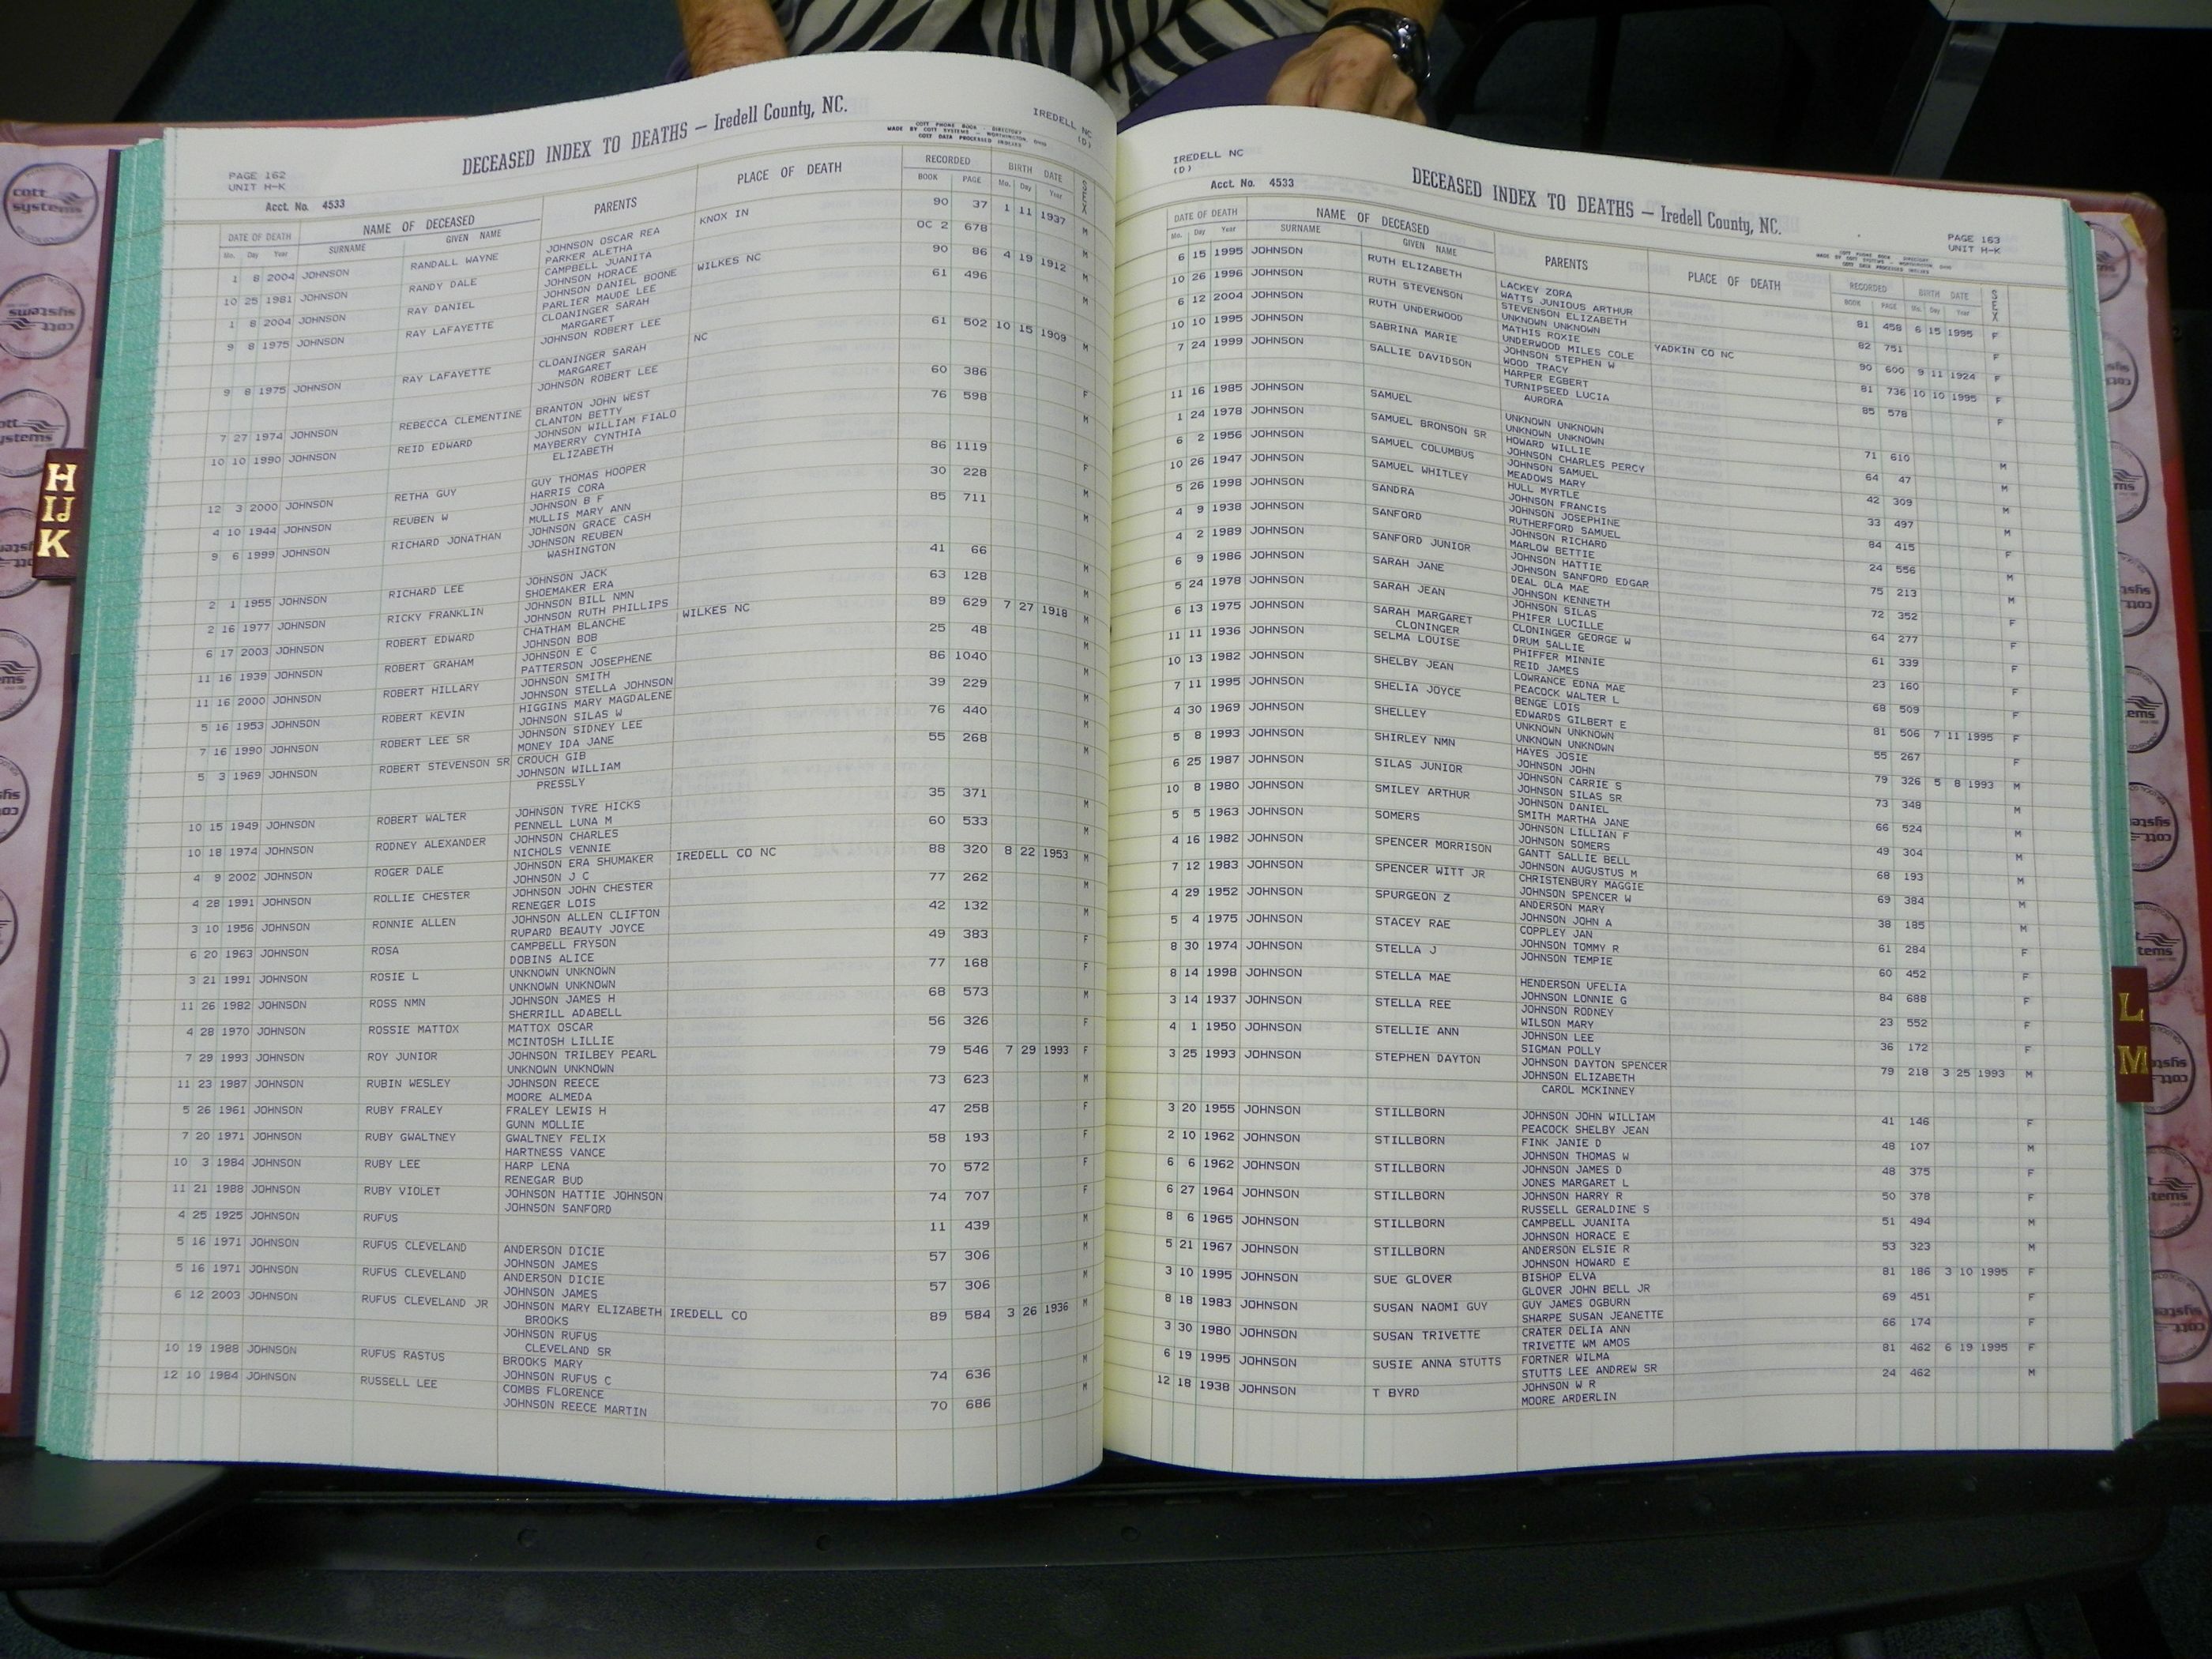 DECEASED INDEX TO DEATHS — Iredell County, NC.
IREDELL NC
(D)
COTT PHONE BOOK - DIRECTORY
MADE BY COTT SYSTEMS - WORTHINGTON, OHIO
COTT DATA PROCESSED INDEXES
PAGE 162
UNIT H-K
Acct. No. 4533
DATE OF DEATH NAME OF DECEASED PARENTS PLACE OF DEATH RECORDED BIRTH DATE SEX
Mo. Day Year SURNAME GIVEN NAME BOOK PAGE Mo. Day Year
1 8 2004 JOHNSON RANDALL WAYNE JOHNSON OSCAR REA KNOX IN 90 37 1 11 1937 M
PARKER ALETHA
10 25 1981 JOHNSON RANDY DALE CAMPBELL JUANITA OC 2 678 M
JOHNSON HORACE
1 8 2004 JOHNSON RAY DANIEL JOHNSON DANIEL BOONE WILKES NC 90 86 4 19 1912 M
PARLIER MAUDE LEE
9 8 1975 JOHNSON RAY LAFAYETTE CLOANINGER SARAH 61 496 M
MARGARET
JOHNSON ROBERT LEE
9 8 1975 JOHNSON RAY LAFAYETTE CLOANINGER SARAH NC 61 502 10 15 1909 M
MARGARET
JOHNSON ROBERT LEE
7 27 1974 JOHNSON REBECCA CLEMENTINE BRANTON JOHN WEST 60 386 F
CLANTON BETTY
10 10 1990 JOHNSON REID EDWARD JOHNSON WILLIAM FIALO 76 598 M
MAYBERRY CYNTHIA
ELIZABETH
12 3 2000 JOHNSON RETHA GUY GUY THOMAS HOOPER 86 1119 F
HARRIS CORA
4 10 1944 JOHNSON REUBEN W JOHNSON B F 30 228 M
MULLIS MARY ANN
9 6 1999 JOHNSON RICHARD JONATHAN JOHNSON GRACE CASH 85 711 M
JOHNSON REUBEN
WASHINGTON
2 1 1955 JOHNSON RICHARD LEE JOHNSON JACK 41 66 M
SHOEMAKER ERA
2 16 1977 JOHNSON RICKY FRANKLIN JOHNSON BILL NMN 63 128 M
JOHNSON RUTH PHILLIPS
6 17 2003 JOHNSON ROBERT EDWARD CHATHAM BLANCHE WILKES NC 89 629 7 27 1918 M
JOHNSON BOB
11 16 1939 JOHNSON ROBERT GRAHAM JOHNSON E C 25 48 M
PATTERSON JOSEPHENE
11 16 2000 JOHNSON ROBERT HILLARY JOHNSON SMITH 86 1040 M
JOHNSON STELLA JOHNSON
5 16 1953 JOHNSON ROBERT KEVIN HIGGINS MARY MAGDALENE 39 229 M
JOHNSON SILAS W
7 16 1990 JOHNSON ROBERT LEE SR JOHNSON SIDNEY LEE 76 440 M
MONEY IDA JANE
5 3 1969 JOHNSON ROBERT STEVENSON SR CROUCH GIB 55 268 M
JOHNSON WILLIAM
PRESSLY
10 15 1949 JOHNSON ROBERT WALTER JOHNSON TYRE HICKS 35 371 M
PENNELL LUNA M
10 18 1974 JOHNSON RODNEY ALEXANDER JOHNSON CHARLES 60 533 M
NICHOLS VENNIE
4 9 2002 JOHNSON ROGER DALE JOHNSON ERA SHUMAKER IREDELL CO NC 88 320 8 22 1953 M
JOHNSON J C
4 28 1991 JOHNSON ROLLIE CHESTER JOHNSON JOHN CHESTER 77 262 M
RENEGER LOIS
3 10 1956 JOHNSON RONNIE ALLEN JOHNSON ALLEN CLIFTON 42 132 M
RUPARD BEAUTY JOYCE
6 20 1963 JOHNSON ROSA CAMPBELL FRYSON 49 383 F
DOBINS ALICE
3 21 1991 JOHNSON ROSIE L UNKNOWN UNKNOWN 77 168 F
UNKNOWN UNKNOWN
11 26 1982 JOHNSON ROSS NMN JOHNSON JAMES H 68 573 M
SHERRILL ADABELL
4 28 1970 JOHNSON ROSSIE MATTOX MATTOX OSCAR 56 326 F
MCINTOSH LILLIE
7 29 1993 JOHNSON ROY JUNIOR JOHNSON TRILBEY PEARL 79 546 7 29 1993 F
UNKNOWN UNKNOWN
11 23 1987 JOHNSON RUBIN WESLEY JOHNSON REECE 73 623 M
MOORE ALMEDA
5 26 1961 JOHNSON RUBY FRALEY FRALEY LEWIS H 47 258 F
GUNN MOLLIE
7 20 1971 JOHNSON RUBY GWALTNEY GWALTNEY FELIX 58 193 F
HARTNESS VANCE
10 3 1984 JOHNSON RUBY LEE HARP LENA 70 572 F
RENEGAR BUD
11 21 1988 JOHNSON RUBY VIOLET JOHNSON HATTIE JOHNSON 74 707 F
JOHNSON SANFORD
4 25 1925 JOHNSON RUFUS 11 439 M
5 16 1971 JOHNSON RUFUS CLEVELAND ANDERSON DICIE 57 306 M
JOHNSON JAMES
5 16 1971 JOHNSON RUFUS CLEVELAND ANDERSON DICIE 57 306 M
JOHNSON JAMES
6 12 2003 JOHNSON RUFUS CLEVELAND JR JOHNSON MARY ELIZABETH IREDELL CO 89 584 3 26 1936 M
BROOKS
JOHNSON RUFUS
CLEVELAND SR
10 19 1988 JOHNSON RUFUS RASTUS BROOKS MARY 74 636 M
JOHNSON RUFUS C
12 10 1984 JOHNSON RUSSELL LEE COMBS FLORENCE 70 686 M
JOHNSON REECE MARTIN
IREDELL NC
(D)
Acct. No. 4533
DECEASED INDEX TO DEATHS — Iredell County, NC.
PAGE 163
UNIT H-K
DATE OF DEATH NAME OF DECEASED PARENTS PLACE OF DEATH RECORDED BIRTH DATE SEX
Mo. Day Year SURNAME GIVEN NAME BOOK PAGE Mo. Day Year
6 15 1995 JOHNSON RUTH ELIZABETH LACKEY ZORA 81 458 6 15 1995 F
WATTS JUNIOUS ARTHUR
10 26 1996 JOHNSON RUTH STEVENSON STEVENSON ELIZABETH 82 751 F
UNKNOWN UNKNOWN
6 12 2004 JOHNSON RUTH UNDERWOOD MATHIS ROXIE YADKIN CO NC 90 600 9 11 1924 F
UNDERWOOD MILES COLE
10 10 1995 JOHNSON SABRINA MARIE JOHNSON STEPHEN W 81 736 10 10 1995 F
WOOD TRACY
7 24 1999 JOHNSON SALLIE DAVIDSON HARPER EGBERT 85 578 F
TURNIPSEED LUCIA
AURORA
11 16 1985 JOHNSON SAMUEL UNKNOWN UNKNOWN 71 610 M
UNKNOWN UNKNOWN
1 24 1978 JOHNSON SAMUEL BRONSON SR HOWARD WILLIE 64 47 M
JOHNSON CHARLES PERCY
6 2 1956 JOHNSON SAMUEL COLUMBUS JOHNSON SAMUEL 42 309 M
MEADOWS MARY
10 26 1947 JOHNSON SAMUEL WHITLEY HULL MYRTLE 33 497 M
JOHNSON FRANCIS
5 26 1998 JOHNSON SANDRA JOHNSON JOSEPHINE 84 415 F
RUTHERFORD SAMUEL
4 9 1938 JOHNSON SANFORD JOHNSON RICHARD 24 556 M
MARLOW BETTIE
4 2 1989 JOHNSON SANFORD JUNIOR JOHNSON HATTIE 75 213 M
JOHNSON SANFORD EDGAR
6 9 1986 JOHNSON SARAH JANE DEAL OLA MAE 72 352 F
JOHNSON KENNETH
5 24 1978 JOHNSON SARAH JEAN JOHNSON SILAS 64 277 F
PHIFER LUCILLE
6 13 1975 JOHNSON SARAH MARGARET CLONINGER GEORGE W 61 339 F
CLONINGER DRUM SALLIE
11 11 1936 JOHNSON SELMA LOUISE PHIFFER MINNIE 23 160 F
REID JAMES
10 13 1982 JOHNSON SHELBY JEAN LOWRANCE EDNA MAE 68 509 F
PEACOCK WALTER L
7 11 1995 JOHNSON SHELIA JOYCE BENGE LOIS 81 506 7 11 1995 F
EDWARDS GILBERT E
4 30 1969 JOHNSON SHELLEY UNKNOWN UNKNOWN 55 267 F
UNKNOWN UNKNOWN
5 8 1993 JOHNSON SHIRLEY NMN HAYES JOSIE 79 326 5 8 1993 M
JOHNSON JOHN
6 25 1987 JOHNSON SILAS JUNIOR JOHNSON CARRIE S 73 348 M
JOHNSON SILAS SR
10 8 1980 JOHNSON SMILEY ARTHUR JOHNSON DANIEL 66 524 M
SMITH MARTHA JANE
5 5 1963 JOHNSON SOMERS JOHNSON LILLIAN F 49 304 M
JOHNSON SOMERS
4 16 1982 JOHNSON SPENCER MORRISON GANTT SALLIE BELL 68 193 M
JOHNSON AUGUSTUS M
7 12 1983 JOHNSON SPENCER WITT JR CHRISTENBURY MAGGIE 69 384 M
JOHNSON SPENCER W
4 29 1952 JOHNSON SPURGEON Z ANDERSON MARY 38 185 M
JOHNSON JOHN A
5 4 1975 JOHNSON STACEY RAE COPPLEY JAN 61 284 F
JOHNSON TOMMY R
8 30 1974 JOHNSON STELLA J JOHNSON TEMPIE 60 452 F
8 14 1998 JOHNSON STELLA MAE HENDERSON UFELIA 84 688 F
JOHNSON LONNIE G
3 14 1937 JOHNSON STELLA REE JOHNSON RODNEY 23 552 F
WILSON MARY
4 1 1950 JOHNSON STELLIE ANN JOHNSON LEE 36 172 F
SIGMAN POLLY
3 25 1993 JOHNSON STEPHEN DAYTON JOHNSON DAYTON SPENCER 79 218 3 25 1993 M
JOHNSON ELIZABETH
CAROL MCKINNEY
3 20 1955 JOHNSON STILLBORN JOHNSON JOHN WILLIAM 41 146 F
PEACOCK SHELBY JEAN
2 10 1962 JOHNSON STILLBORN FINK JANIE D 48 107 M
JOHNSON THOMAS W
6 6 1962 JOHNSON STILLBORN JOHNSON JAMES D 48 375 F
JONES MARGARET L
6 27 1964 JOHNSON STILLBORN JOHNSON HARRY R 50 378 F
RUSSELL GERALDINE S
8 6 1965 JOHNSON STILLBORN CAMPBELL JUANITA 51 494 M
JOHNSON HORACE E
5 21 1967 JOHNSON STILLBORN ANDERSON ELSIE R 53 323 M
JOHNSON HOWARD E
3 10 1995 JOHNSON SUE GLOVER BISHOP ELVA 81 186 3 10 1995 F
GLOVER JOHN BELL JR
8 18 1983 JOHNSON SUSAN NAOMI GUY GUY JAMES OGBURN 69 451 F
SHARPE SUSAN JEANETTE
3 30 1980 JOHNSON SUSAN TRIVETTE CRATER DELIA ANN 66 174 F
TRIVETTE WM AMOS
6 19 1995 JOHNSON SUSIE ANNA STUTTS FORTNER WILMA 81 462 6 19 1995 F
STUTTS LEE ANDREW SR
12 18 1938 JOHNSON T BYRD JOHNSON W R 24 462 M
MOORE ARDERLIN
H
IJ
K
L
M
cott
systems